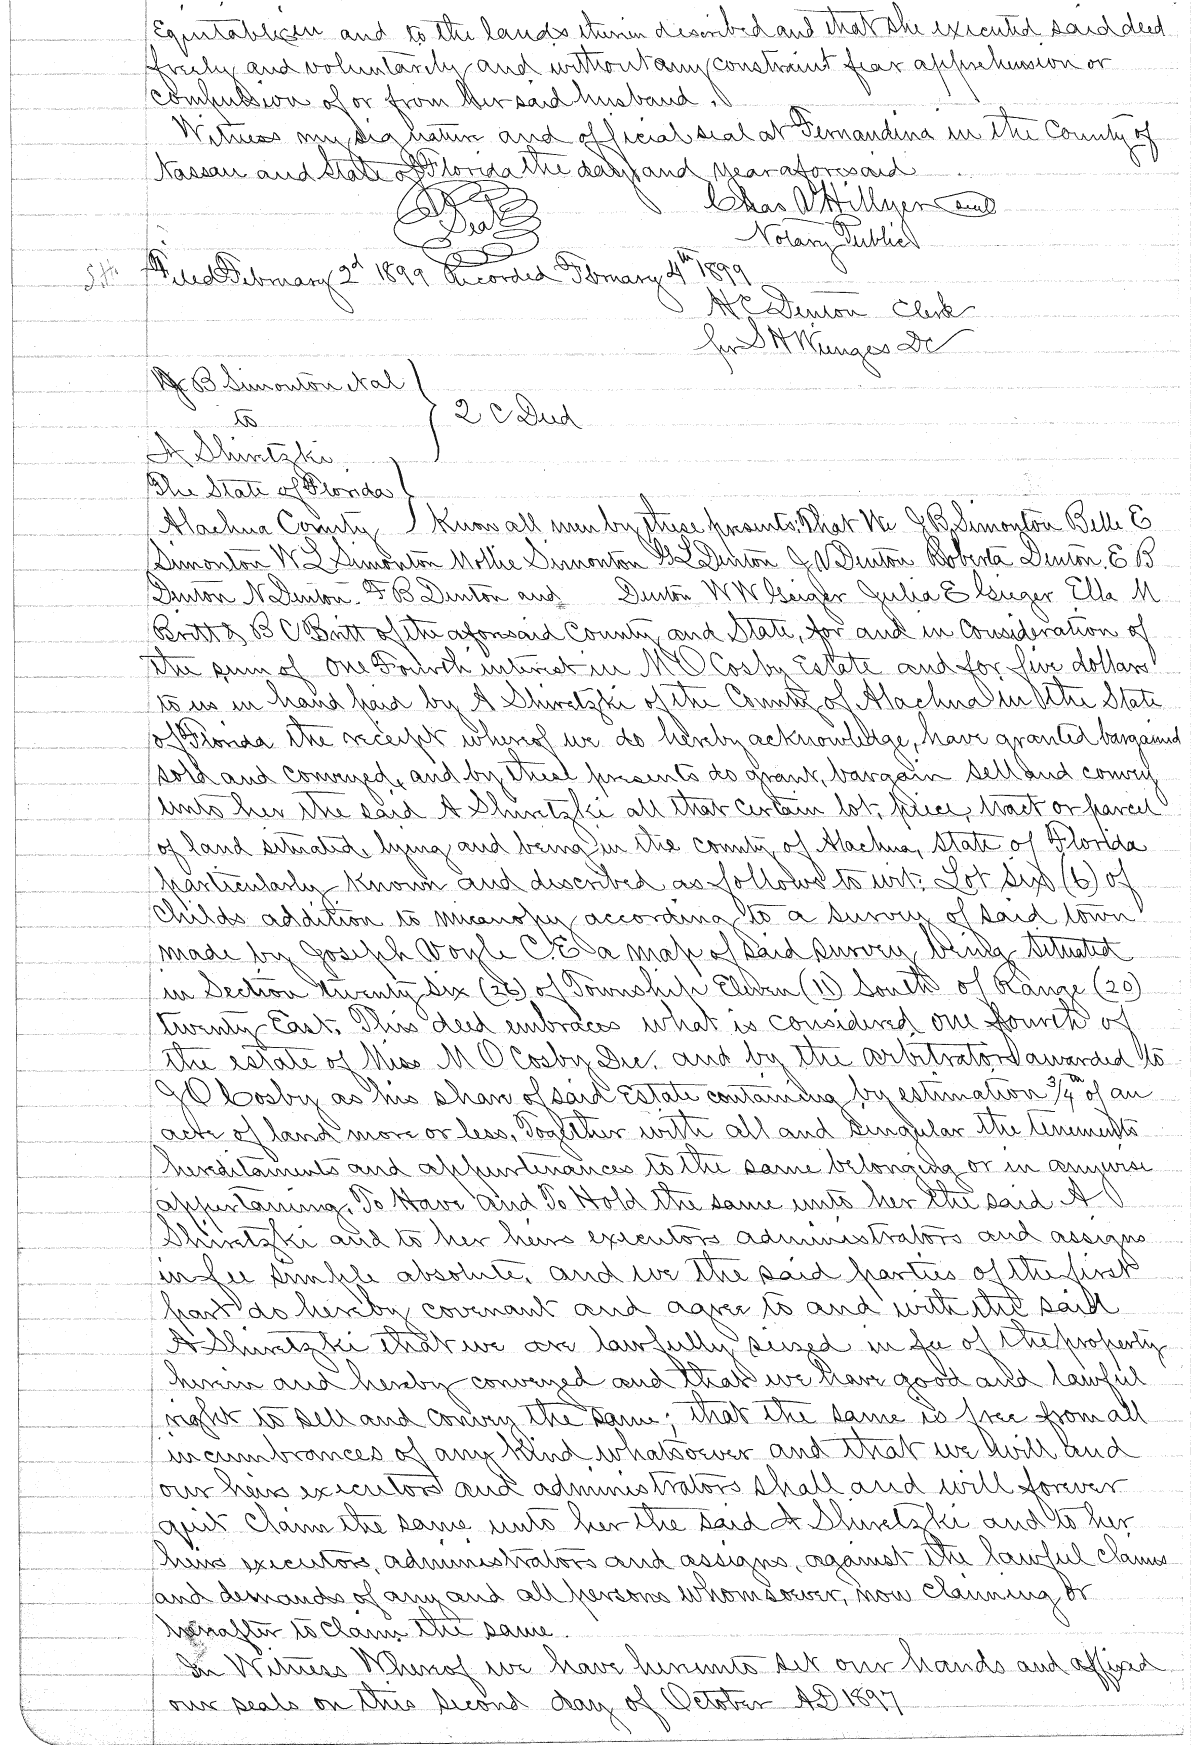 Equitable in and to the lands therein described and that she executed said deed
freely and voluntarily and without any constraint fear apprehension or
compulsion of or from her said husband.
Witness my signature and official seal at Fernandina in the County of
Nassau and State of Florida the day and year aforesaid
Chas V Hillyer seal
Seal
Notary Public
Filed February 2d 1899 Recorded February 4th 1899
H C Denton Clerk
per S H Wienges DC
J B Simonton et al
to } 2 C Deed
A Shiretzki
The State of Florida }
Alachua County } Know all men by these presents; That We J B Simonton Belle E
Simonton W L Simonton Mollie Simonton G L Denton J V Denton Roberta Denton, E B
Denton N Denton. F B Denton and Denton W W Geiger Julia E Gieger Ella M
Britt & B C Britt of the aforesaid County and State, for and in Consideration of
the sum of One Fourth interest in M O Cosby Estate and for five dollars
to us in hand paid by A Shiretzki of the County of Alachua in the State
of Florida the receipt whereof we do hereby acknowledge, have granted bargained
sold and conveyed, and by these presents do grant, bargain sell and convey
unto her the said A Shiretzki all that certain lot, piece, tract or parcel
of land situated, lying and being in the county of Alachua, State of Florida
particularly known and described as follows to wit: Lot Six (6) of
Childs addition to Micanopy according to a survey of said town
made by Joseph Voyle C.E. a map of said survey being situated
in Section twenty six (26) of Township Eleven (11) South of Range (20)
twenty East. This deed embraces what is considered one fourth of
the estate of Miss M O Cosby Dec. and by the arbitrators awarded to
J O Cosby as his share of said Estate containing by estimation 3/4th of an
acre of land more or less, Together with all and singular the tenements
hereditaments and appurtenances to the same belonging or in anywise
appertaining, To Have and To Hold the same unto her the said A
Shiretzki and to her heirs executors administrators and assigns
in fee simple absolute, and we the said parties of the first
part do hereby covenant and agree to and with the said
A Shiretzki that we are lawfully seized in fee of the property
herein and hereby conveyed and that we have good and lawful
right to sell and convey the same; that the same is free from all
incumbrances of any kind whatsoever and that we will and
our heirs executors and administrators shall and will forever
quit claim the same unto her the said A Shiretzki and to her
heirs executors, administrators and assigns, against the lawful claims
and demands of any and all persons whomsoever, now claiming or
hereafter to claim the same.
In Witness Whereof we have hereunto set our hands and affixed
our seals on this second day of October AD 1897